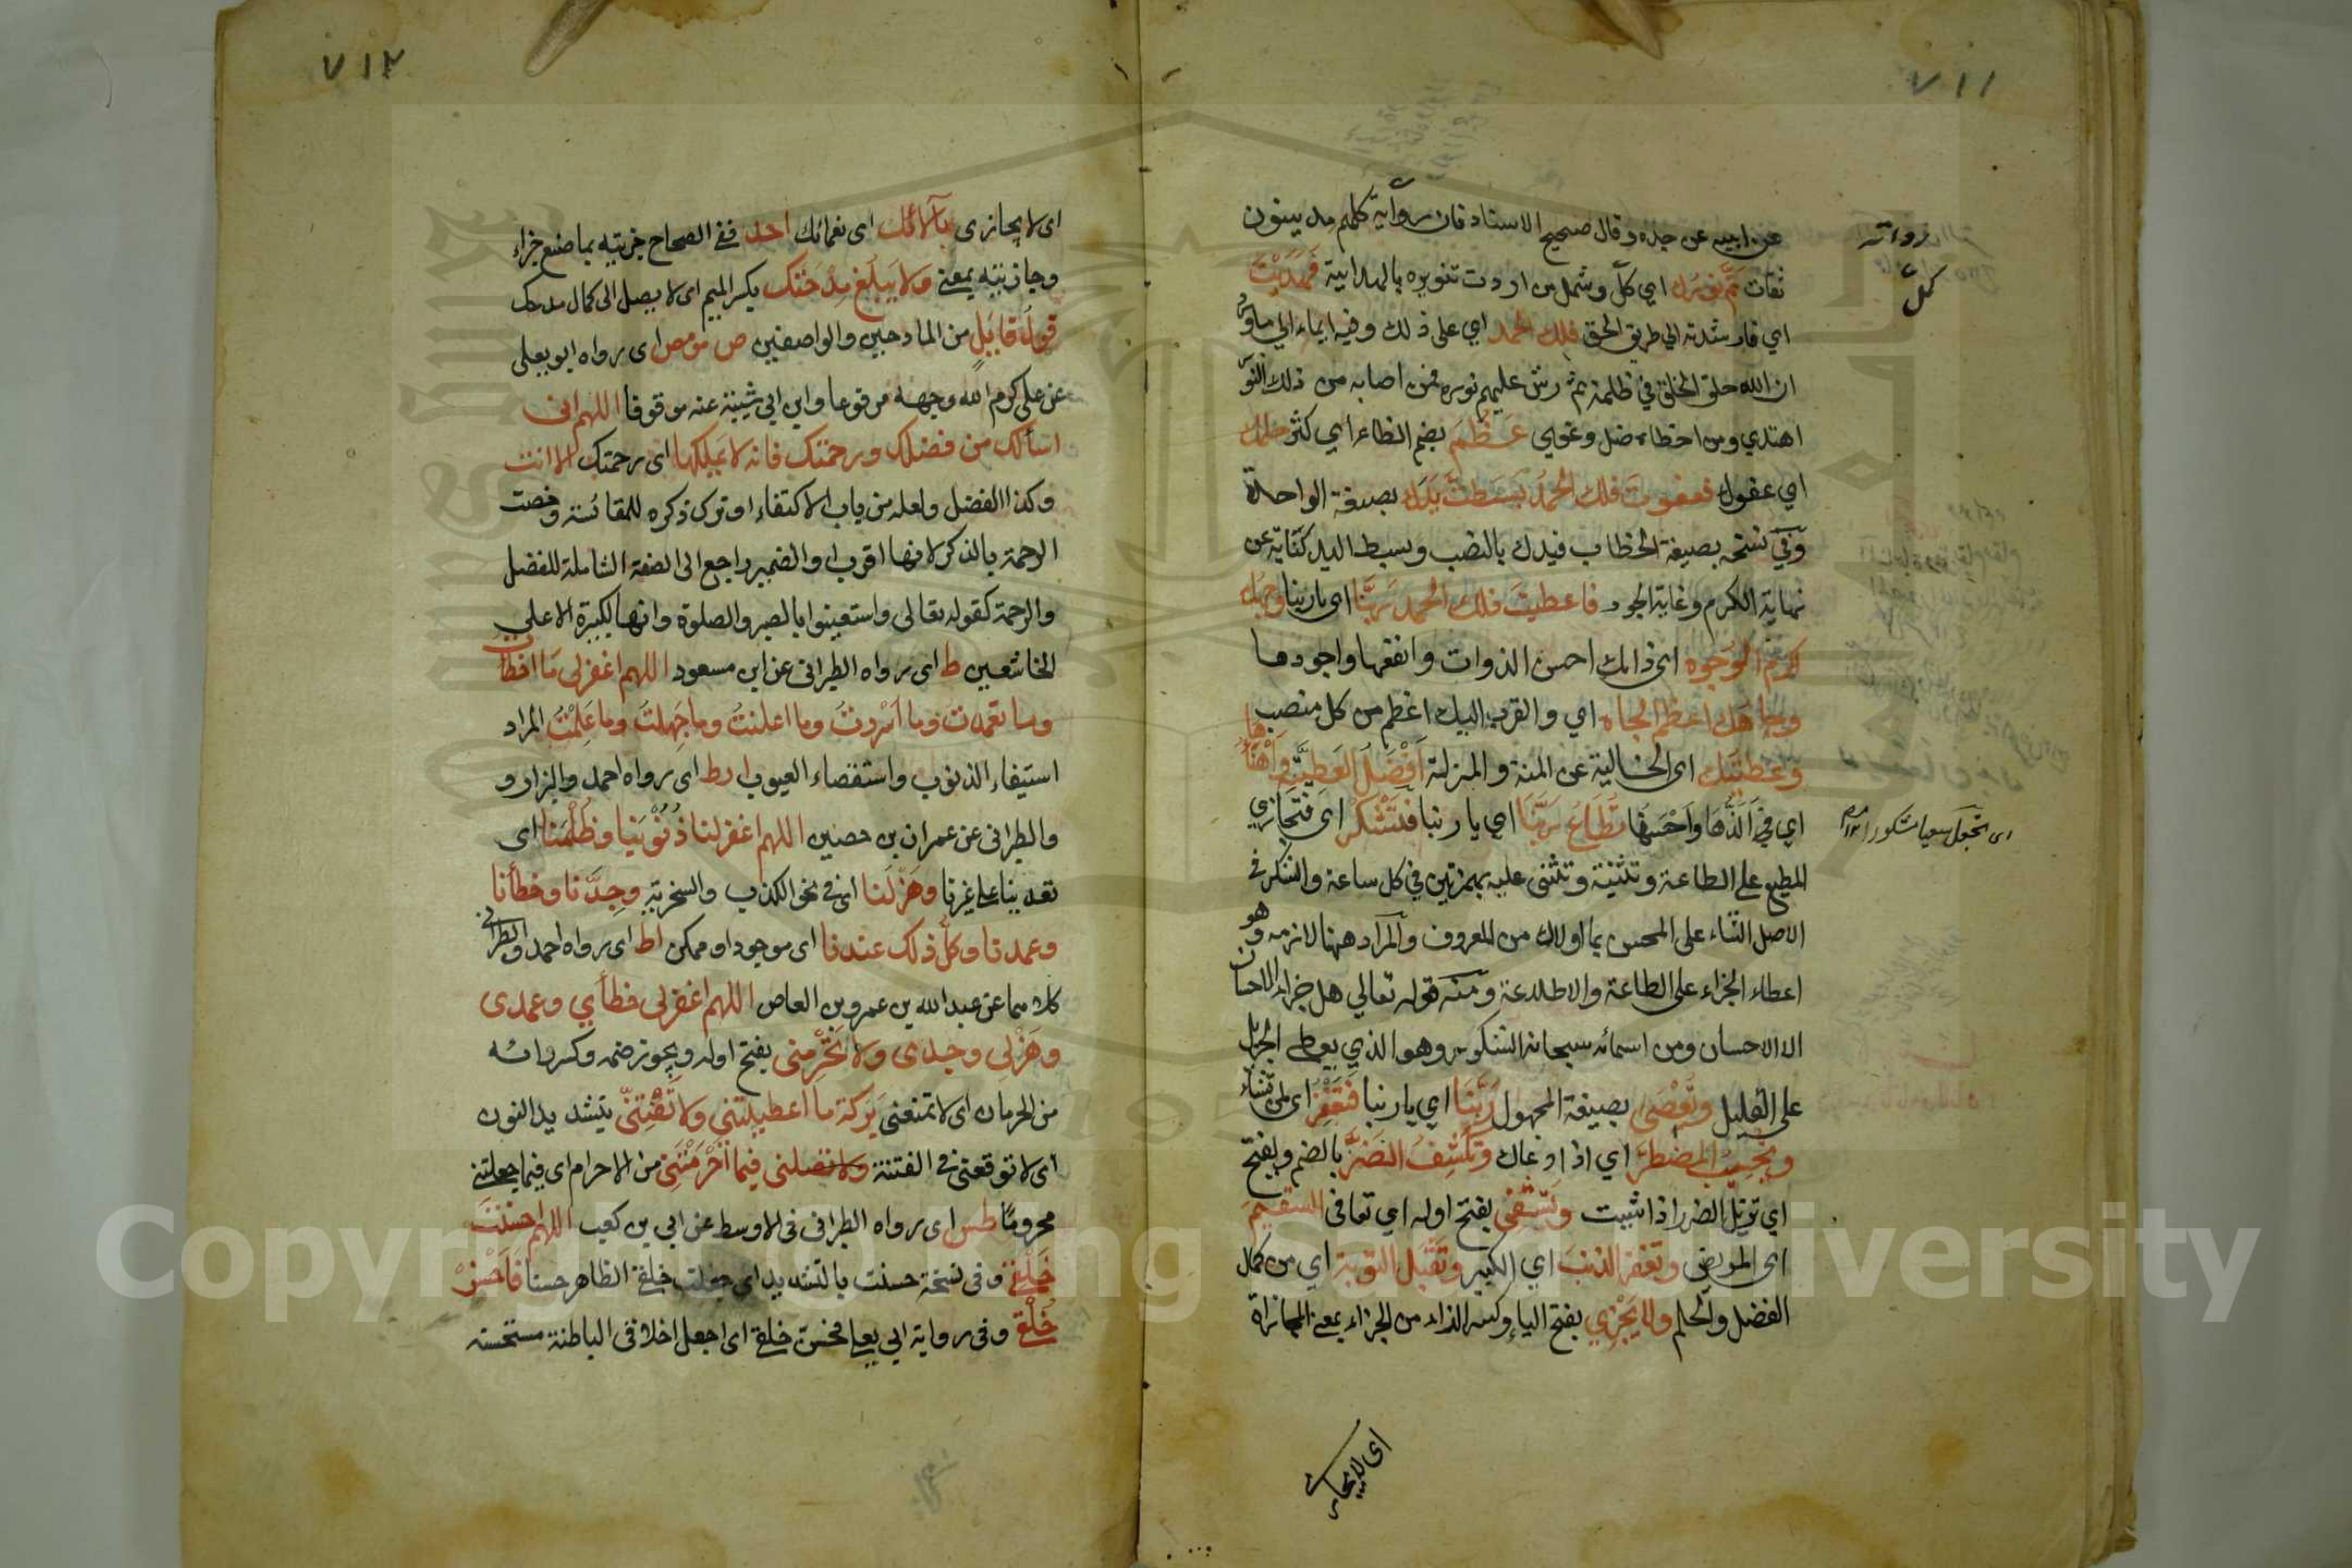 ٧١١
عن ابيه عن جده وقال صحيح الاسناد فان رواية كلهم مدينون
رواته
كل
ثقات تم نورك اي كل وشمل من اردت تنويره بالهداية فهديت
اي فارشدته الي طريق الحق فلك الحمد اي على ذلك وفيه ايماء الي ما
ان الله خلق الخلق في ظلمة ثم رش عليهم نوره فمن اصابه من ذلك النور
اهتدي ومن اخطاه ضل وغوي عَظُمَ بضم الظاء اي كثر حلمك
اي عفوك فعفوت فلك الحمد بَسَطَتْ يدك بصيغة الواحدة
وفي نسخة بصيغة الخطاب فيدك بالنصب وبسط اليد كناية عن
نهاية الكرم وغاية الجود فاعطيت فلك الحمد ربَّنا اي ياربنا وجهك
اكرم الوجوه اي ذاتك احسن الذوات وانفعها واجودها
وجاهك اعظم الجاه اي والقرب اليك اعظم من كل منصب
وعطيتك اي الخالية عن المنة والمنزلة اَفْضَلُ العَطِيَّةِ وَاَهْنَأُها
اي في اَلَذُّهَا وَاَحْسَنُهَا تُطَاعُ رَبَّنَا اي ياربنا فَتَشْكُرُ اي فتجازي
اي تجعل سعيا مشكورا
المطيع على الطاعة وتثنية وتثني عليه بهمزتين في كل ساعة والشكر في
الاصل الثناء على المحسن بما اولاك من المعروف والمراد ههنا لازمه وهو
اعطاء الجزاء على الطاعة والاطلاعة ومنه قوله تعالي هل جزاء الاحسان
الا الاحسان ومن اسمائه سبحانه الشكور وهو الذي يعطي الجزيل
على القليل وتُعْصَى بصيغة المجهول رَبَّنَا اي ياربنا فَتَغْفِرُ اي لمن تشاء
وتُجِيبُ المضطَرَّ اي اذا دعاك وَتَكْشِفُ الضَرَّ بالضم ويفتح
اي تزيل الضر اذا شيت وَتَشْفِي بفتح اوله اي تعافي السقيم
اي المريض وتغفر الذنبَ اي الكبير وتَقْبَلُ التوبة اي من كمال
الفضل والحلم ولا يَجْزِي بفتح الياء وكسر الزاء من الجزاء بمعني المجازاة
اي لا يجازي
٧١٢
اى لا يجازى بآلائك اى نعمائك احد ففى الصحاح جزيته بما صنع جزاء
وجازيته بمعنى ولا يَبْلُغ مِدْحَتَك بكسر الميم اى لا يصل الى كمال مدحك
قولُ قائِلٍ من المادحين والواصفين ص مو مص اى رواه ابو يعلى
عن على كرم الله وجهه مرفوعا وابن ابي شيبة عنه موقوفا اللهم انى
اسألك من فضلك ورحمتك فانه لا يَمْلِكُها اى رحمتك الا انت
وكذا الفضل ولعله من باب الاكتفاء او ترك ذكره للمقائسة وخصت
الرحمة بالذكر لانها اقرب او الضمير راجع الى الصفة الشاملة للفضل
والرحمة كقوله تعالى واستعينوا بالصبر والصلوة وانها لكبيرة الا على
الخاشعين ط اى رواه الطبرانى عن ابن مسعود اللهم اغفرلى مَا اخطأت
وما تعمدت وما اَسْرَرتُ وما اعلنتُ وما جَهِلتُ وما عَلِمْتُ المراد
استيفاء الذنوب واستقصاء العيوب ا ر ط اى رواه احمد والبزار و
والطبرانى عن عمران بن حصين اللهم اغفرلنا ذُنُوبَنَا وظُلْمَنَا اى
تعدينا على غيرنا وهَزْلَنا اى فى نحو الكذب والسخرية وجِدَّنا وخطأنا
وعمدنا وكل ذلك عندنا اى موجود او ممكن ا ط اى رواه احمد والطبرانى
كلاهما عن عبد الله بن عمرو بن العاص اللهم اغفرلى خطأي وعمدى
وهَزْلِى وجدى ولا تَحْرِمنى بفتح اوله ويجوز ضمه وكسر رائه
من الحرمان اى لا تمنعنى بَرَكَة ما اعطيتنى ولا تَفْتِنّى بتشديد النون
اى لا توقعنى فى الفتنة ولا تضلنى فيما اَحْرَمْتَنِى من الاحرام اى فيما جعلتنى
محروما طس اى رواه الطبرانى فى الاوسط عن ابي بن كعب اللهم احسنتَ
خَلْقى وفى نسخة حسنت بالتشديد اى جعلت خلقة الظاهر حسنا فَاَحْسِنْ
خُلُقى وفى رواية ابي يعلى فحسن خلقى اى اجعل اخلاقى الباطنة مستحسنه
Copyright © King Saud University